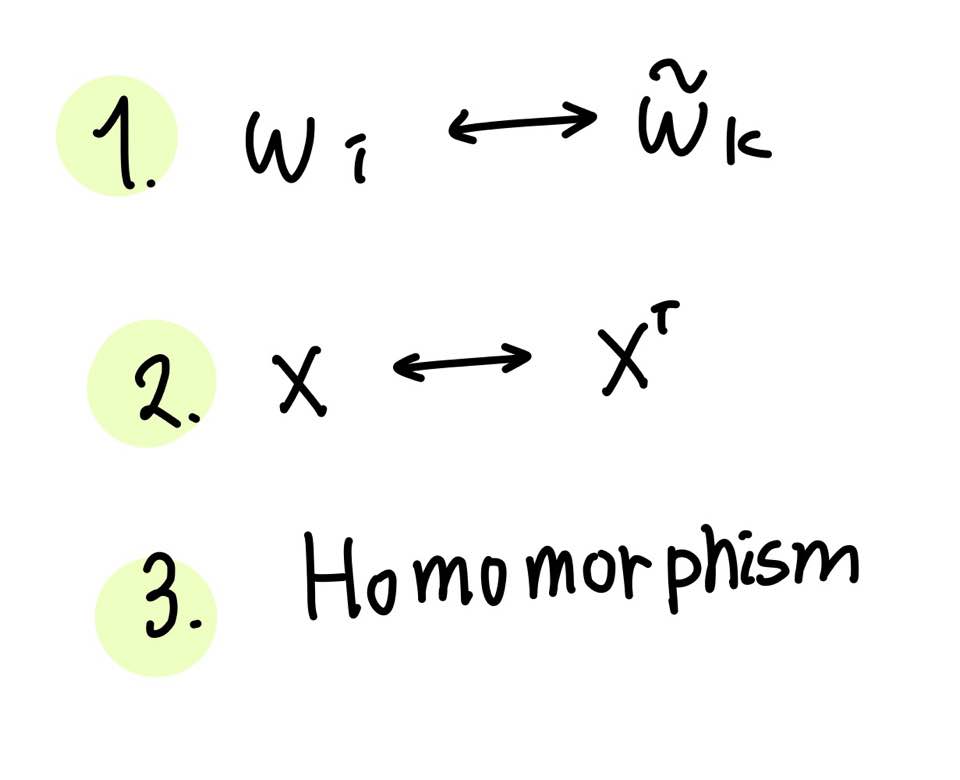 1. wᵢ ↔ w̃ₖ
2. X ↔ Xᵀ
3. Homomorphism